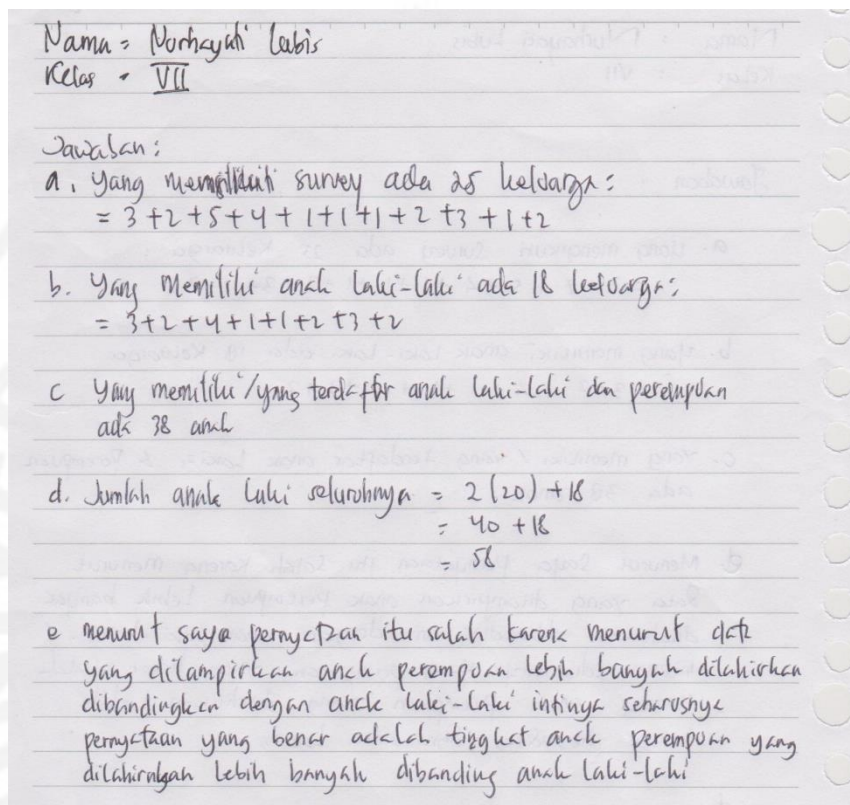 Nama = Norhayati Lubis
Kelas = VII
Jawaban :
a. Yang mengikuti survey ada 25 keluarga :
= 3 + 2 + 5 + 4 + 1 + 1 + 1 + 2 + 3 + 1 + 2
b. Yang memiliki anak laki-laki ada 18 keluarga :
= 3 + 2 + 4 + 1 + 1 + 2 + 3 + 2
c Yang memiliki / yang terdaftar anak laki-laki dan perempuan
ada 38 anak
d. Jumlah anak laki seluruhnya = 2 (20) + 18
= 40 + 18
= 58
e menurut saya pernyataan itu salah karena menurut data
yang dilampirkan anak perempuan lebih banyak dilahirkan
dibandingkan dengan anak laki-laki intinya seharusnya
pernyataan yang benar adalah tingkat anak perempuan yang
dilahirkan lebih banyak dibanding anak laki-laki